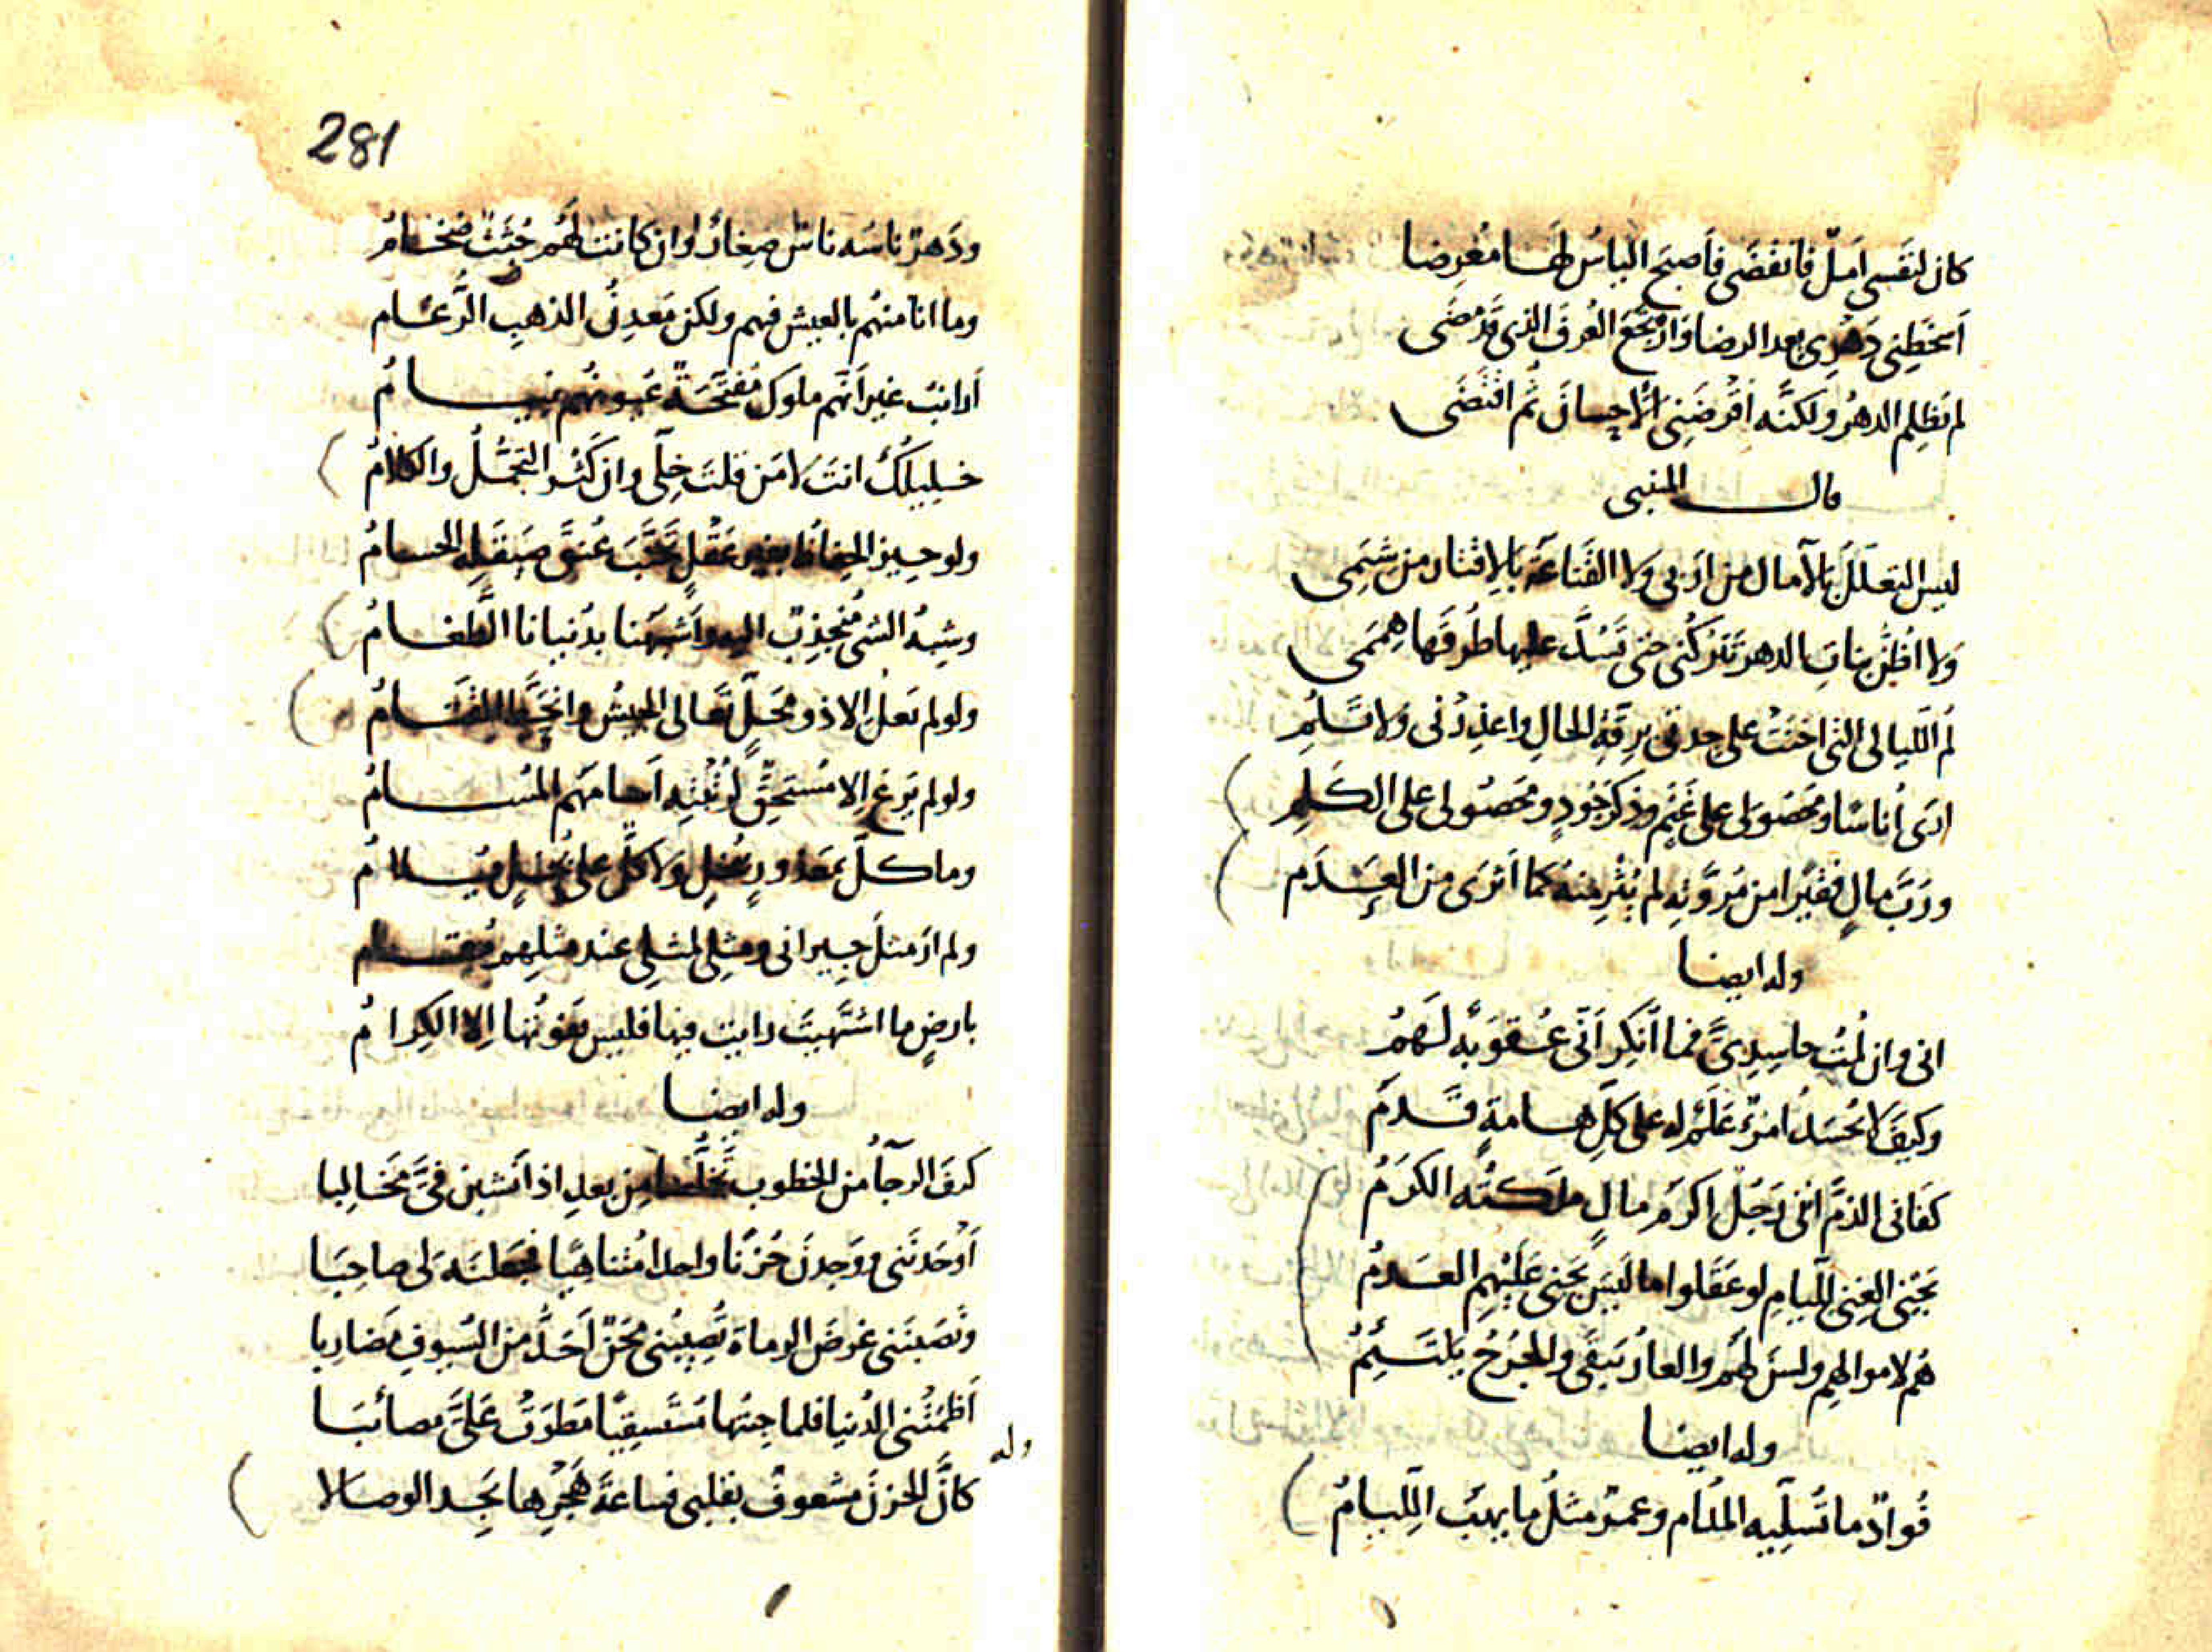 كان لنفسي اَملٌ فانقضَى فاَصبحَ الياسُ لهَا مُعْرِضا
اَسخطَني دَهْرِي بعد الرضا وَارتجَعَ العُرفَ الذي قد مضَى
لم تظلِم الدهرُ ولكنَّه اقْرضَنِي الاِحسانَ ثم اقتضَى
قال المتنبي
ليس التعلّلُ بالآمالِ من اَرَبي وَلا القَناعَةُ بالاِقتارِ من شيَمِي
وَلا اظُنُّ بناتِ الدهرِ تَتركُني حتى تَسُدَّ عليها طُرقَها هِمَمي
لُمِ اللّيالي التي اخنَتْ على جِدتي برِقَّةِ الحالِ واعذِرْني وَلا تَلُمِ
ارَى اُناسًا ومَحصُولي على غَنَمٍ وذِكرَ جُودٍ ومَحصُولي على الكَلِمِ
ورَبَّ مالٍ فقيرًا من مُروَّتِه لم يُثْرِ منهُ كما اَثرَى من العَدَمِ
وله ايضا
اني وان لُمتُ حاسِدِيَّ فما اُنكِرُ اَنّي عُقوبةٌ لَهُمُ
وكيفَ لا يُحسَدُ امرُؤٌ عَلَمٌ له على كلّ هامةٍ قَدَمُ
كفاني الذمَّ انّني رَجُلٌ اكرمُ مالٍ ملكتُه الكَرَمُ
يَجني الغِنى لِلّيامِ لو عَقَلوا ما لَيسَ يَجني عَليهِمِ العَدَمُ
هُم لاموالهِم ولسنَ لهُمُ والعارُ يَبقَى والجُرْحُ يلتئِمُ
وله ايضا
فُوادٌ ما تُسلِّيه المُدَام وعمرٌ مثلُ ما يهبُ اللِّيامُ
281
ودَهرٌ ناسُه ناسٌ صِغارٌ وان كانت لهُم جُثَثٌ ضخامُ
وما انا منهُم بالعيش فيهم ولكن مَعدِنُ الذهبِ الرَّغام
اَرانبُ غيرَ اَنّهم ملوكٌ مُفتَّحَةٌ عيونُهم نيامُ
خليلُكَ انتَ لا مَن قلتَ خِلّي وان كثُر التجمُّلُ والكلامُ
ولو حِيزَ الحِفاظُ بغيرِ عَقْلٍ تجَنَّبَ عُنقَ صَيقَلِه الحسامُ
وشِبهُ الشي مُنجذِبٌ اليه واَشبهُنا بدُنيانا الطَّغامُ
ولو لم يَعلُ الا ذو محَلٍّ تعالى الجيشُ وانحَطَّ القَتامُ
ولو لم يَرعَ الا مُستَحِقٌّ لرُتْبتِه اَسامَهُم المُسامُ
وما كلٌّ بمَعذورٍ ببُخلٍ وَلا كلٌّ على بُخلٍ يُلامُ
ولم ارَ مثلَ جيراني ومثلِي لمثلِي عند مثلِهم مُقام
بارضٍ ما اشتَهيتَ رايتَ فيها فليس يفوتُها اِلا الكِرامُ
وله ايضا
كيفَ الرجآُ من الخطوبِ تخَلُّصًا مِن بعدِ اذ اَنشَبن فيَّ مَخالِبا
اَوْحَدنَني ووَجدنَ حُزنًا واحدًا مُتناهيًا فجعَلنَه لي صاحِبَا
ونَصَبنَني غرَضَ الرماة تُصِيبُني مِحَنٌ اَحَدُّ من السُيوفِ مَضاربا
اَظمَتْني الدُنيا فلما جئتُها مُستَسقِيًا مَطَرَتْ عَليَّ مصائبَا
وله
كانَّ الحزنَ مشعوفٌ بقلبي فساعةَ هَجْرِها يَجِد الوصالا